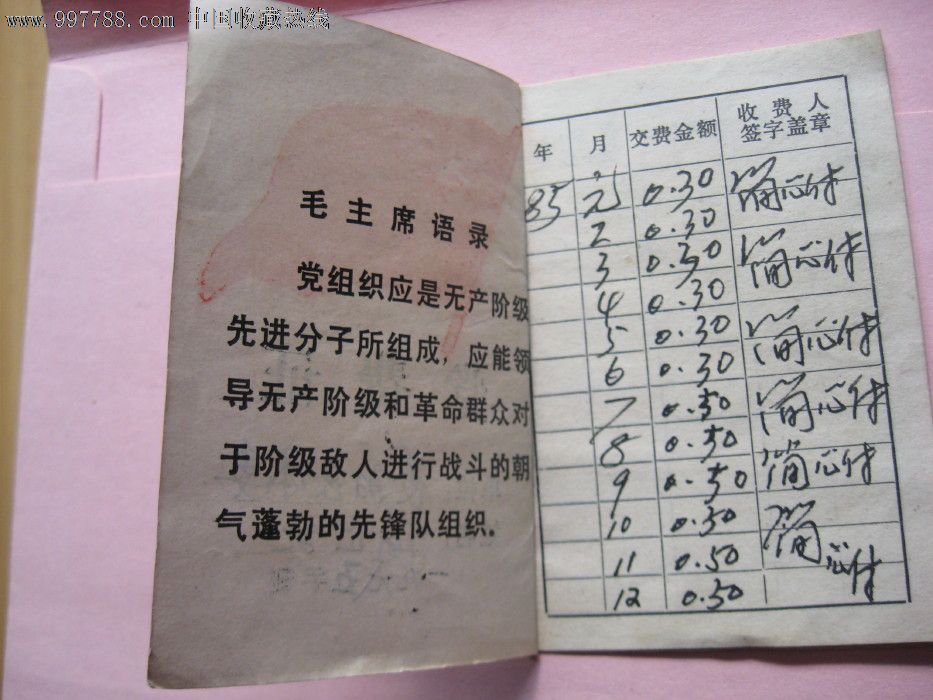 www.997788.com 中国收藏热线
毛主席语录
党组织应是无产阶级
先进分子所组成，应能领
导无产阶级和革命群众对
于阶级敌人进行战斗的朝
气蓬勃的先锋队组织.
年 月 交费金额 收费人签字盖章
85 元 0.30
2 0.30
3 0.30
4 0.30
5 0.30
6 0.30
7 0.50
8 0.50
9 0.50
10 0.50
11 0.50
12 0.50